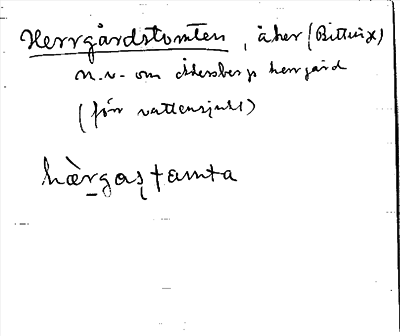 Herrgårdstomten, åker (Bittvix)
n.v. om Åkersbergs herrgård
(för vattensjukt)
hæ̀rgaʂṭamta